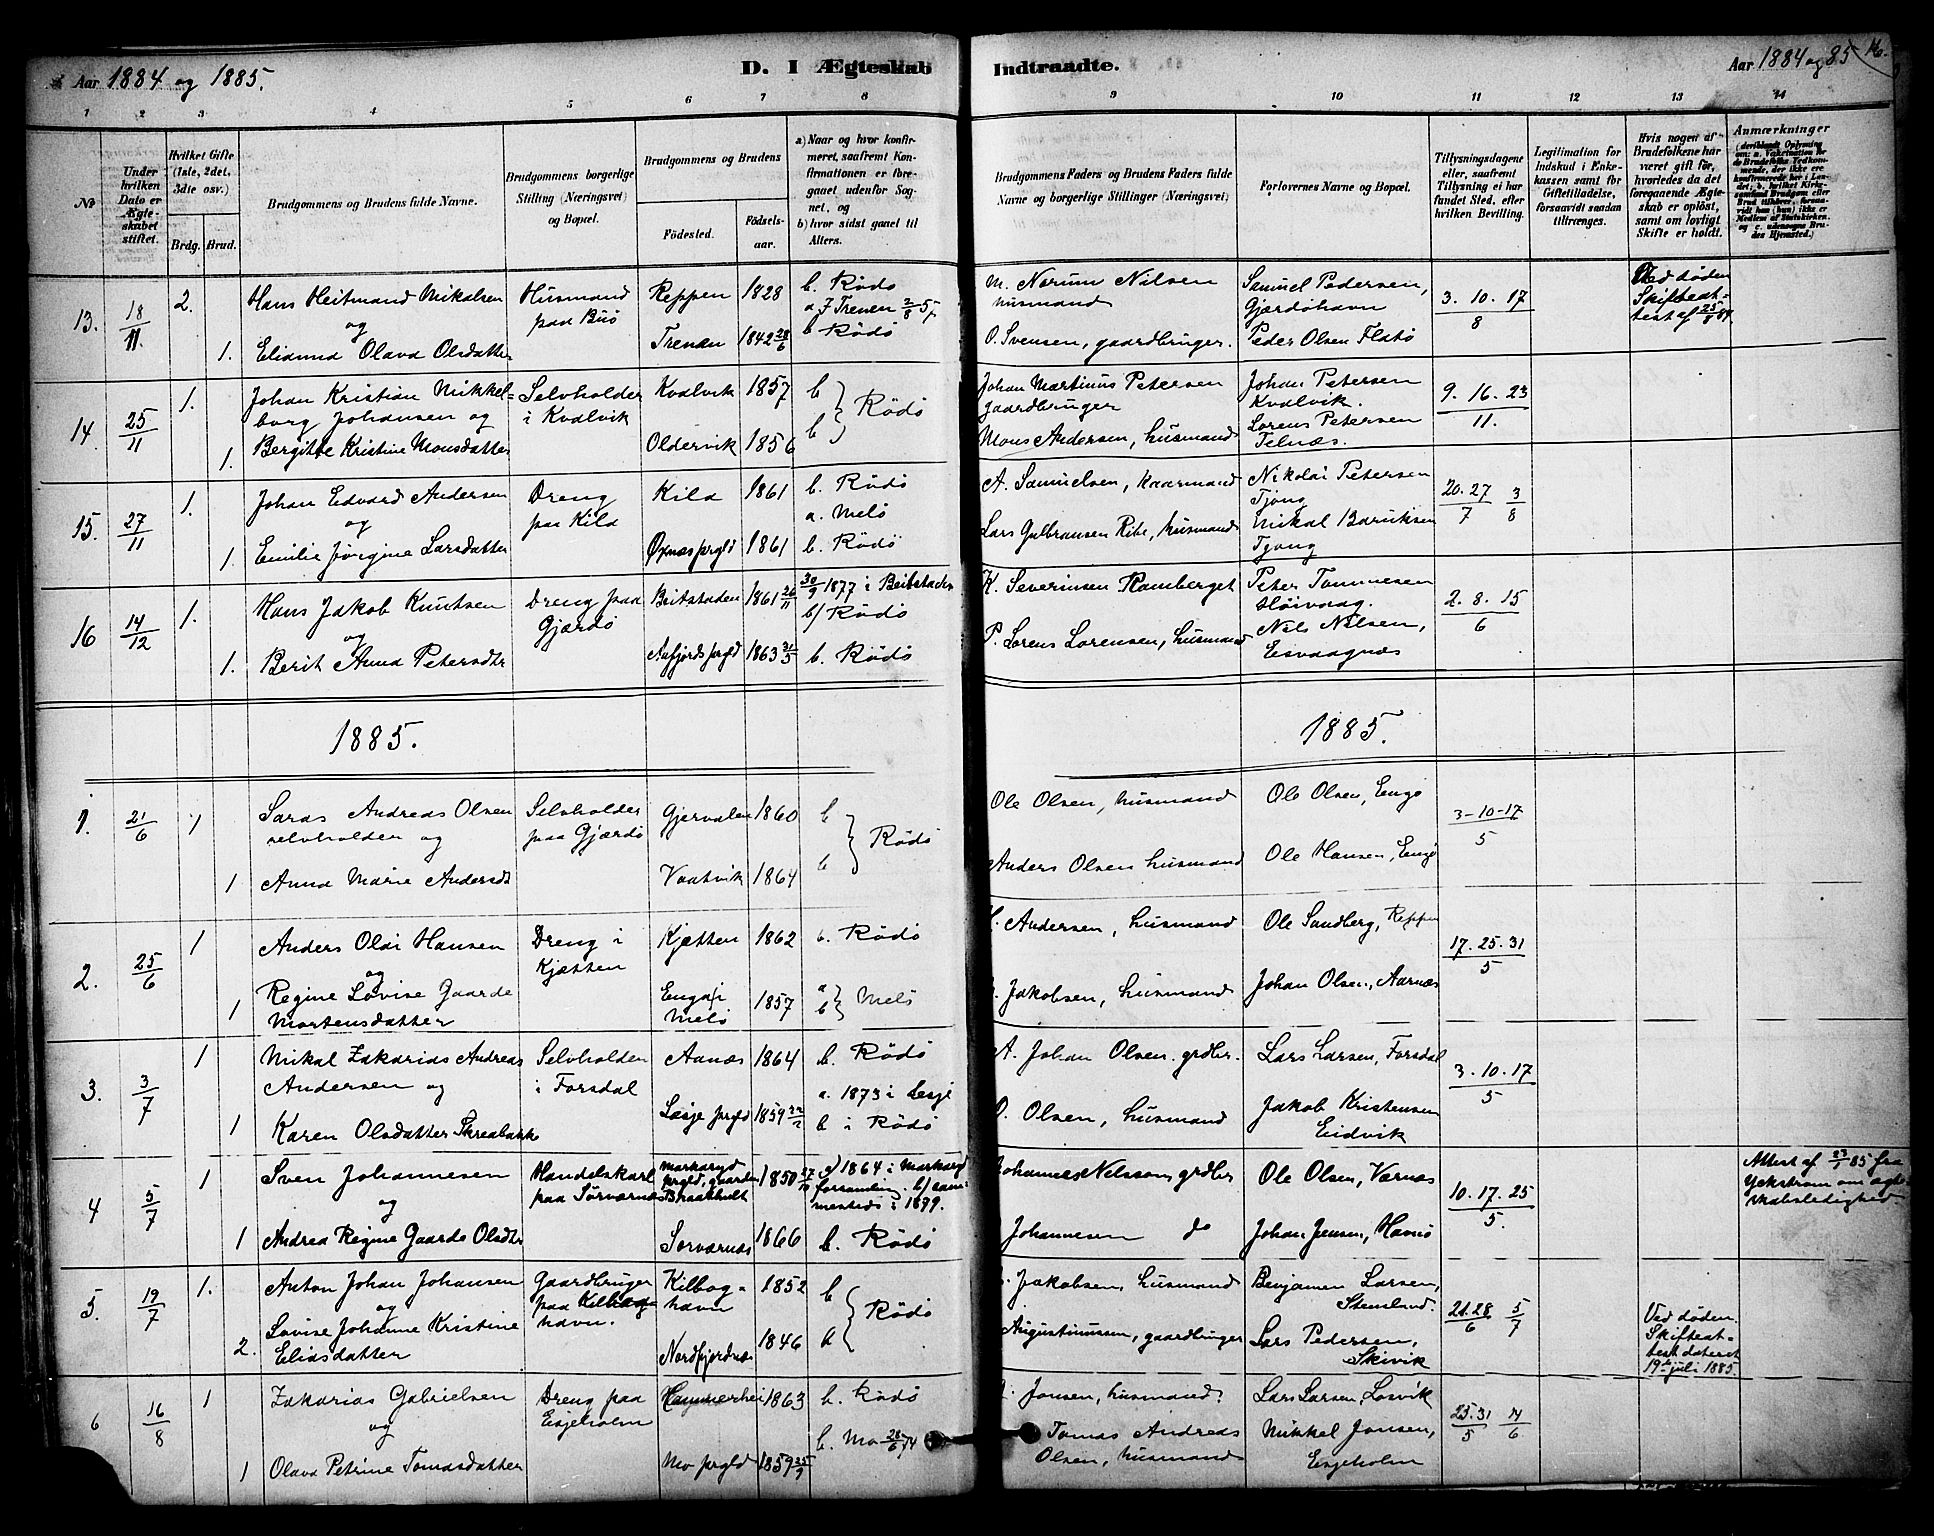 Aar 1884 og 1885.
D. I Ægteskab
Indtraadte.
Aar 1884 og 85
16.
1 2 3 4 5 6 7 8
9 10 11 12 13 14
No
Under hvilken Dato er Ægteskabet stiftet.
Hvilket Gifte (1ste, 2det, 3die osv.)
Brdg. Brud.
Brudgommens og Brudens fulde Navne.
Brudgommens borgerlige Stilling (Næringsvei) og Bopæl.
Brudgommens og Brudens
Födested.
Födsels-aar.
a) Naar og hvor konfirmeret, saafremt Konfirmationen er foregaaet udenfor Sognet, og
b) hvor sidst gaaet til Alters.
Brudgommens Faders og Brudens Faders fulde Navne og borgerlige Stillinger (Næringsvei)
Forlovernes Navne og Bopæl.
Tillysningsdagene eller, saafremt Tillysning ei har fundet Sted, efter hvilken Bevilling.
Legitimation for Indskud i Enkekassen samt for Giftetilladelse, forsaavidt saadan tiltrænges.
Hvis nogen af Brudefolkene har været gift før, hvorledes da det foregaaende Ægteskab er oplöst, samt om lovligt Skifte er holdt.
Anmærkninger
13. 18/11. 2. Hans Heitmand Mikalsen Husmand Reppen 1828 b. Rödö
og paa Buö a, f Trenen 2/8 57
1. Elidnud Olava Olsdatter Trenæn 1842 28/6 b Rödö
M. Norum Nilsen husmand
O. Svensen, gaardbruger.
Samuel Pedersen, Gjærdöhavn
Peder Olsen Flatö
3. 10. 17/8
Ved döden Skifteattest af 25/8 84.
14. 25/11 1. Johan Kristian Mikkelborg Johansen og Selvholder i Kvalvik Kvalvik 1857 b
1. Bergitte Kristine Monsdatter Oldervik 1856 b Rödö
Johan Martinus Petersen gaardbruger
Mons Andersen, husmand
Johan Petersen Kvalvik.
Lorens Petersen Telnæs.
9. 16. 23/11.
15. 27/11 1. Johan Edvard Andersen Dreng paa Kila Kila 1861 b. Rödö
og a. Melö
1 Emilie Jörgine Larsdatter Øxnæs prgld 1861 b. Rödö
A. Samuelsen, kaarmand
Lars Gulbransen Ribe, husmand
Nikolai Petersen Tjong
Mikal Baruksen Tjong
20. 27/7 3/8
16 14/12 1. Hans Jakob Knutsen Dreng paa Gjærdö Beitstaden 1861 26/11 30/9 1877 i Beitstaden
og b/ Rödö
1. Berit Anna Petersdtr Aafjords prgld 1863 31/5 b. Rödö
K. Severinsen Ramberget
P. Lorens Lorensen, husmand
Peter Tommesen Höivaag.
Nils Nilsen, Esvaagnæs
2. 8. 15/6
1885.
1885.
1. 21/6 1 Saras Andreas Olsen Selvholder paa Gjærdö Gjervalen 1860 b
selvholder og
1 Anna Marie Andersdt Vaatvik 1864 b Rödö
Ole Olsen, husmand
Anders Olsen husmand
Ole Olsen, Engö
Ole Hansen, Engö
3-10-17/5
2. 25/6 1 Anders Olai Hansen Dreng i Kjætten Kjætten 1862 b. Rödö
og
1 Regine Lovise Gaarde Mortensdatter Engaf i Melö 1857 a b Melö
Andersen, husmand
Jakobsen, husmand
Ole Sandberg, Reppen
Johan Olsen, Aarnæs
17. 25. 31/5
3. 3/7 1 Mikal Zakarias Andreas Andersen og Selvholder i Forsdal Aanæs 1864 b. Rödö
a. 1873 i Lesje
1 Karen Olsdatter Skreabakk Lesje prgld 1859 b i Rödö
A. Johan Olsen. grdbr.
O. Olsen, husmand
Lars Larsen, Forsdal
Jakob Kristensen Eidvik
3. 10. 17/5
4 5/7 1 Sven Johannesen Handelskarl paa Sörværnæs Markaryd prgld, gaarden Braakhult 1850 a) 1864 i Markaryd forsamling. b) sammesteds i 1899.
og
1 Andrea Regine Gaards Olsdtr Sorværnæs 1866 b. Rödö
Johannes Nelsson, grdbr
Johannesen do
Ole Olsen, Værnæs
Johan Jensen, Havnö
10. 17. 25/5.
Attest af 23/1 85 fra Yckstrom om ægteskabsledighed.
5. 19/7 1. Anton Johan Johansen Gaardbruger paa Kilboghavn. Kilboghavn 1852 b
og
2. Lovise Johanne Kristine Eliasdatter Nordfjordnæs 1846 b Rödö
Jakobsen, husmand
Augustinussen, gaardbruger
Benjamen Larsen, Stensland.
Lars Pedersen, Skivik
21. 28/6 5/7
Ved döden. Skifteattest dateret 19de juli 1885.
6 16/8 1 Zakarias Gabrielsen Dreng paa Esjeholm 1863 b. Rödö
og
1 Olava Petrine Tomasdatter Mo prgld 1859 25/9 b. Mo 28/6 74
Jonsen, husmand.
Tomas Andreas Olsen, husmand
Lars Larsen, Losvik
Mikkel Jonsen, Esjeholm
25. 31/5 14/6